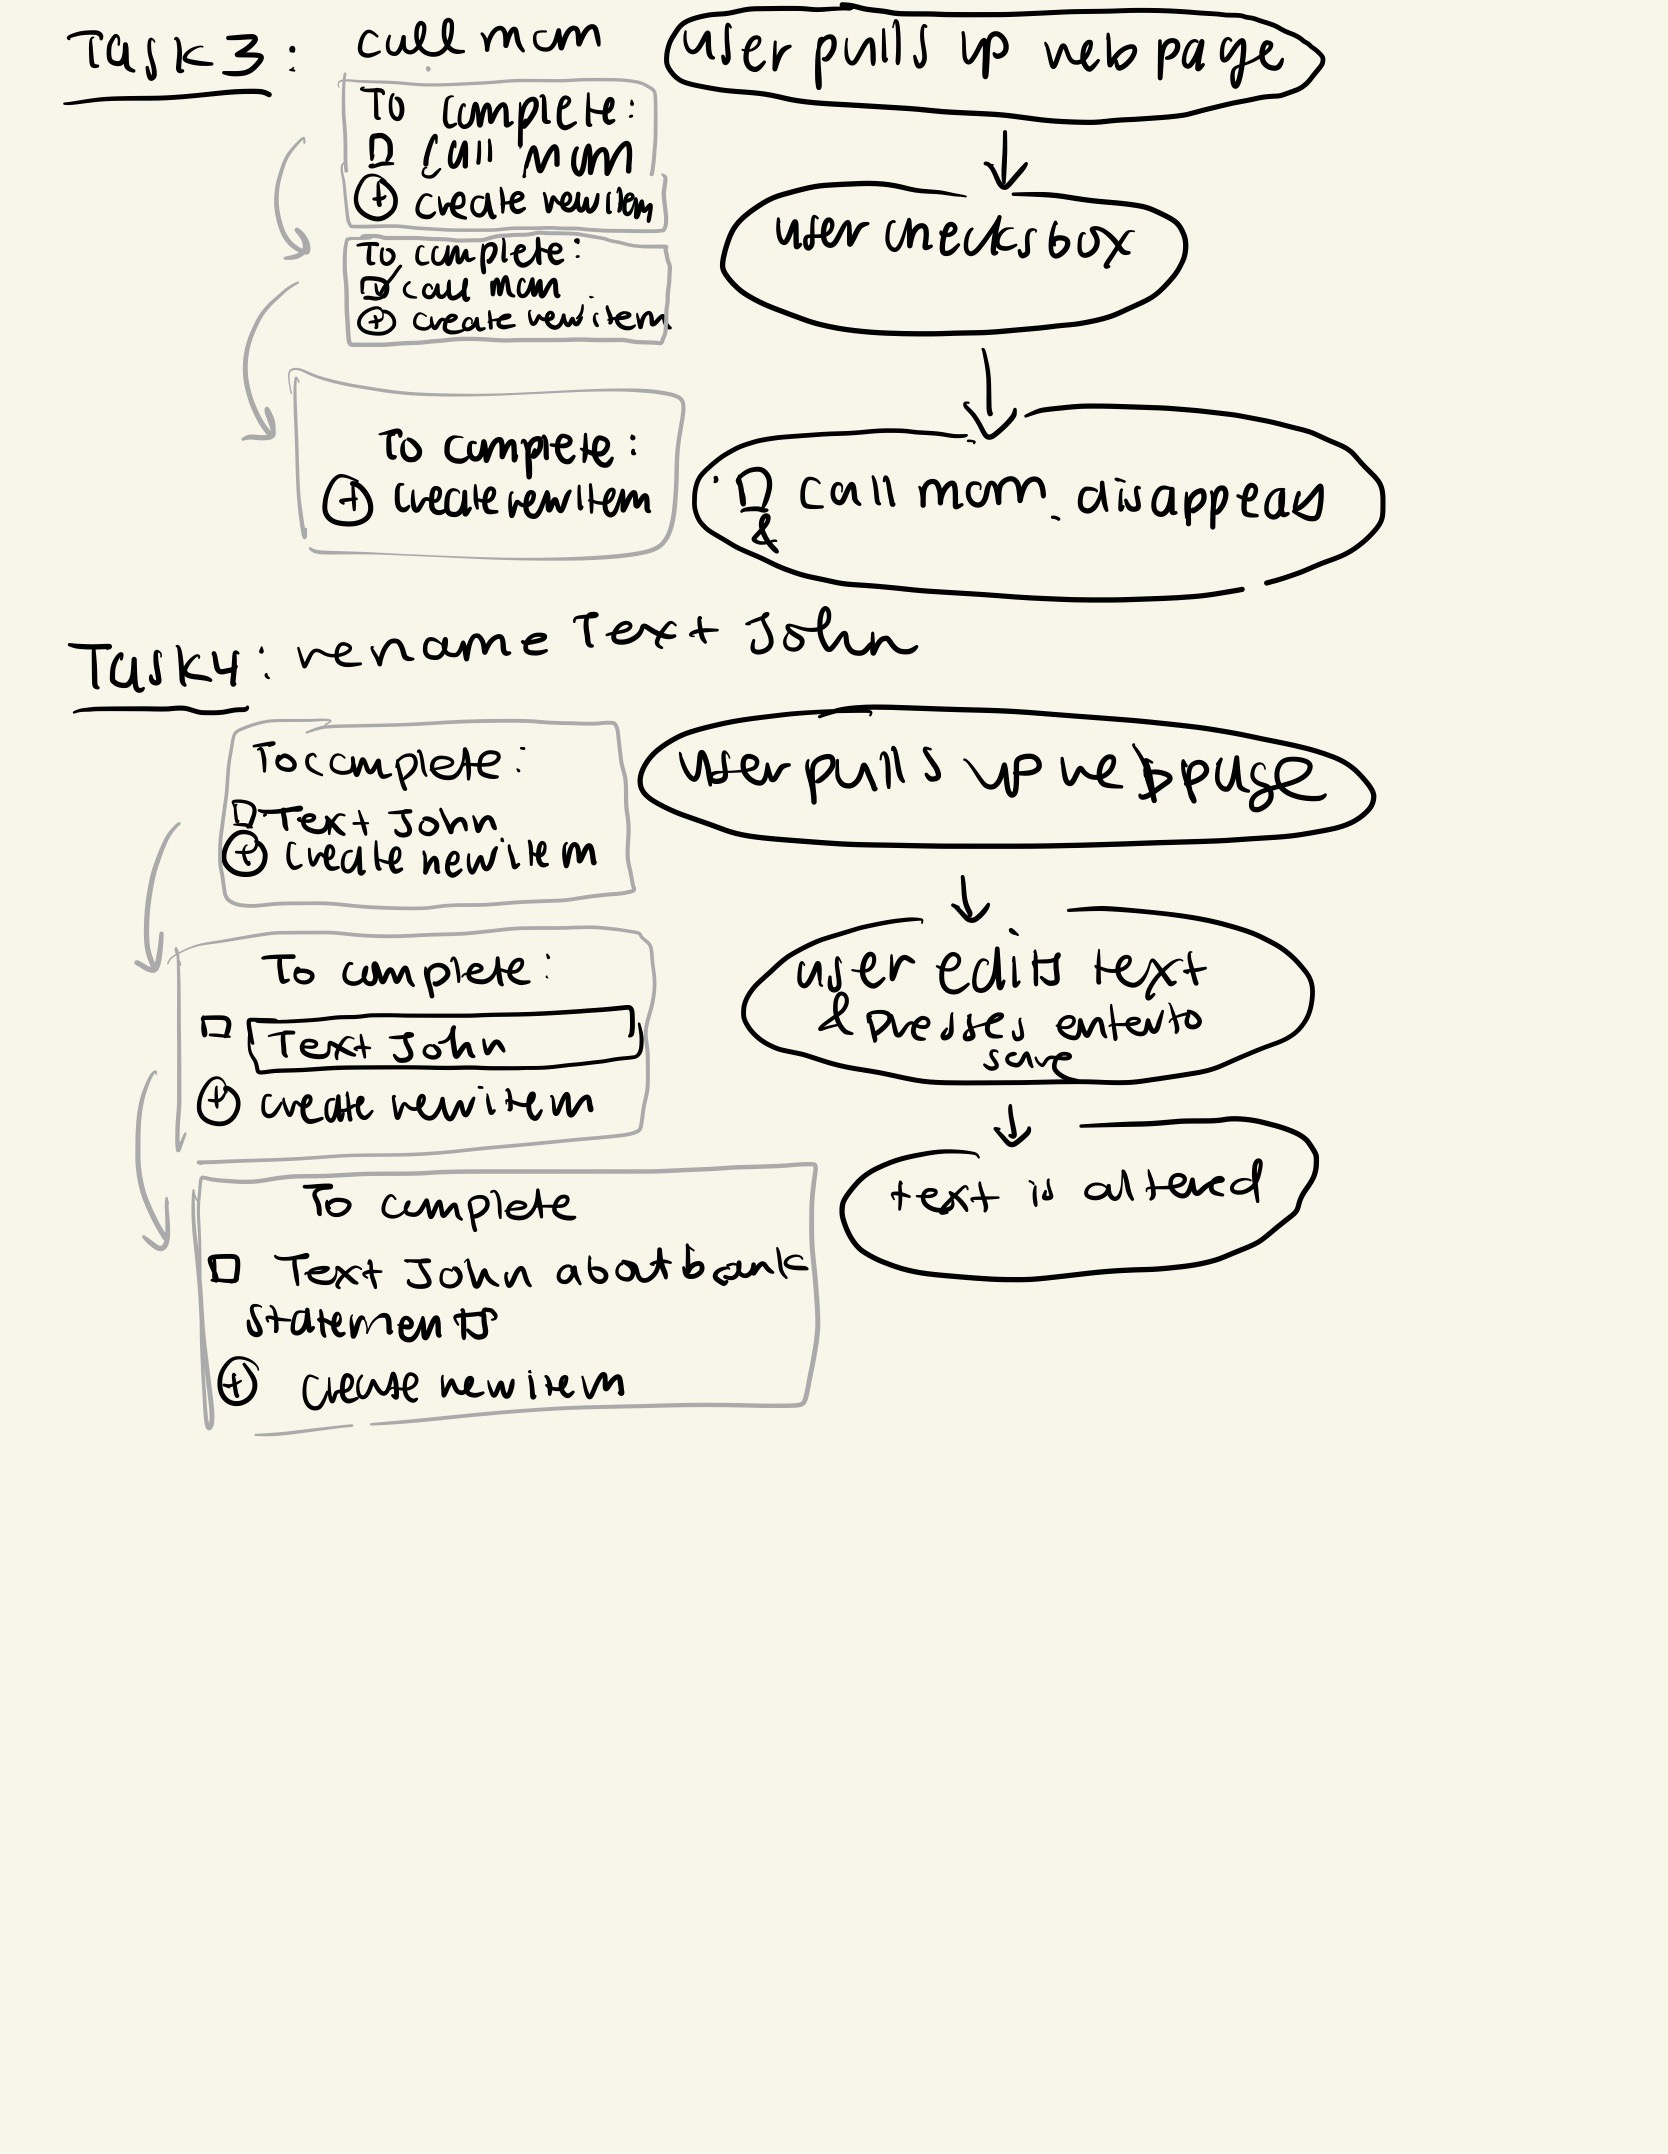 Task 3: call mom
To complete:
call mom
+ create new item
To complete:
call mom
+ create new item
To complete:
+ create new item
user pulls up webpage
user checks box
call mom disappears
&
Task 4: rename Text John
To complete:
Text John
+ create new item
To complete:
Text John
+ create new item
To complete
Text John about bank
statements
+ create new item
user pulls up webpage
user edits text
& presses enter to
save
text is altered